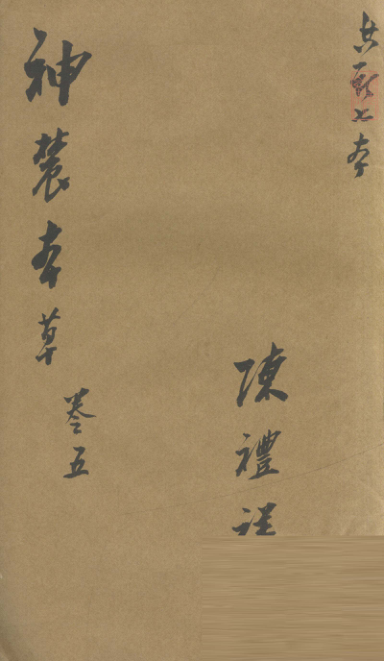 共七本
陳禮
神農本草
卷五